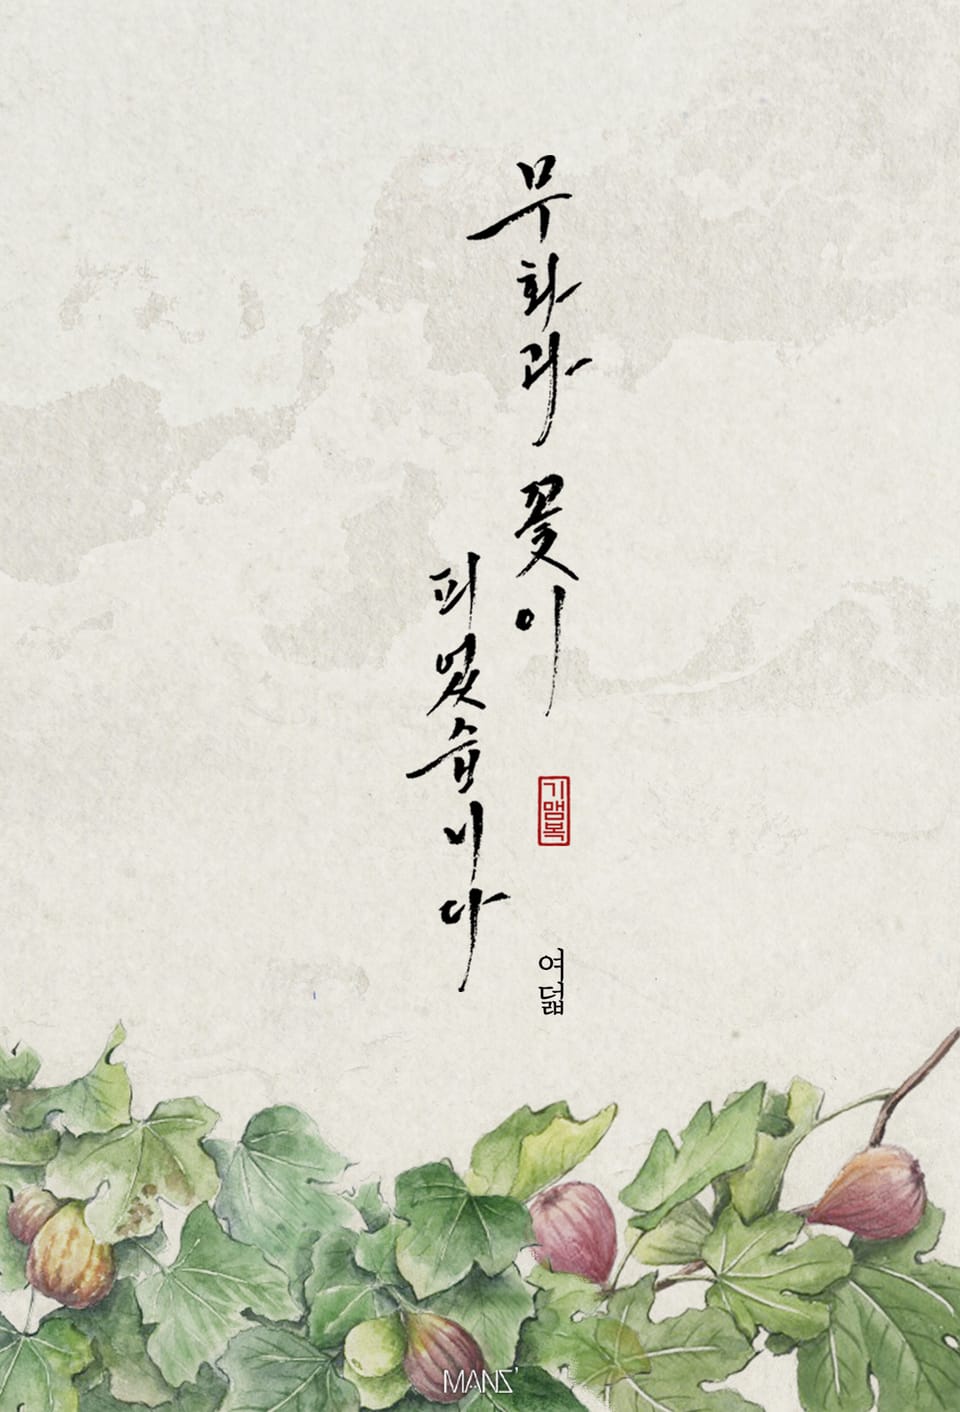 무화과 꽃이
피었습니다
기맴복
여덟
MANZ'